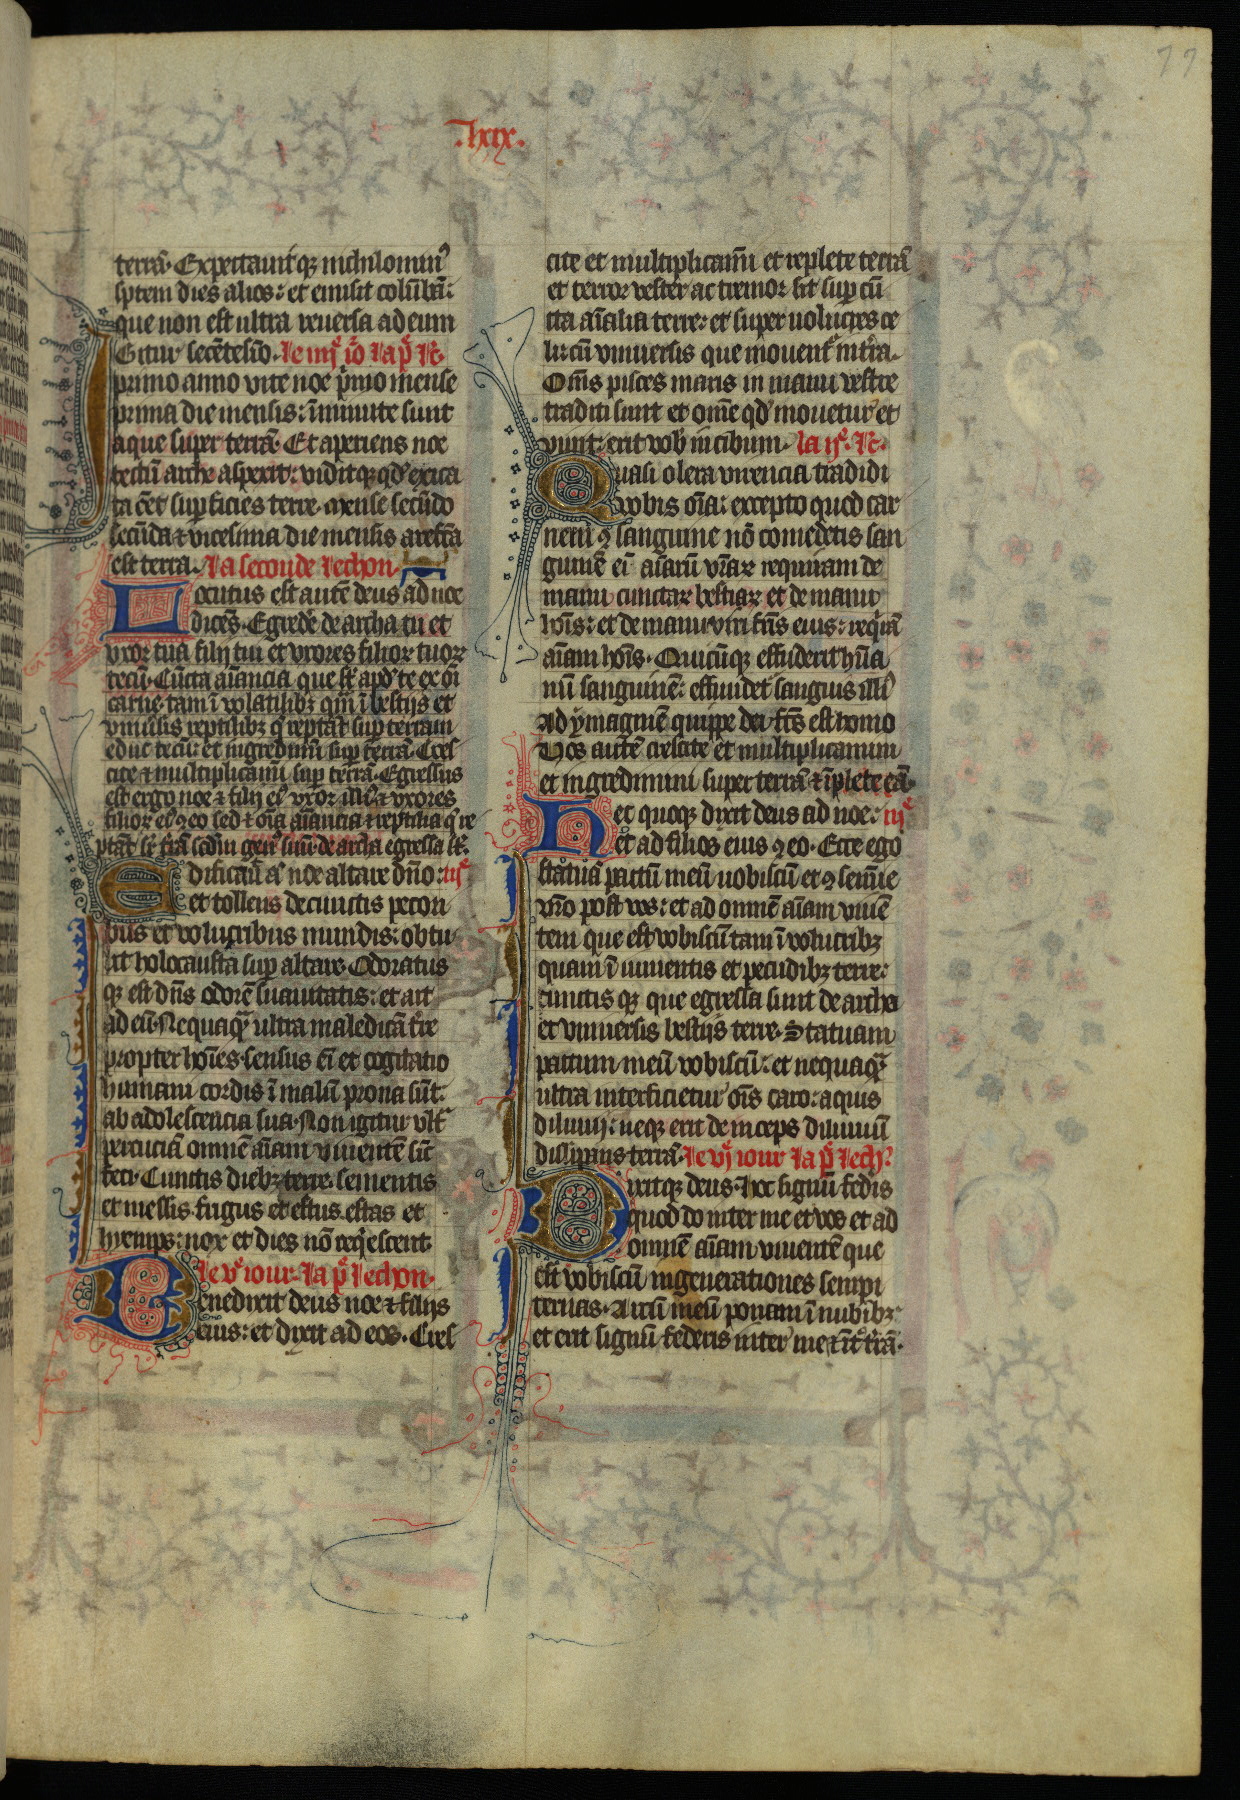 77
.lxix.
terrã. Expectauit q3 nichilomin9
septem dies alios: et emisit colũbã:
que non est ultra reuersa ad eum
Igitur secẽtesĩo. le iiije io la p̃ le.
primo anno vite noe p̃mo mense
prima die mensis: ĩminute sunt
aque super terrã. Et aperiens noe
tectũ arche aspexit: vidit q3 qd exicca
ta eẽt sup̃ficies terre. mense secũdo
secũda ⁊ vicesima die mensis arefcã
est terra. la seconde lechon
Locutus est autẽ deus ad noe
dicẽs. Egredẽ de archa tu et
vxor tua filij tui et vxores filior tuor
tecũ. Cũcta aĩancia que sũt apd te ex oĩ
carne. tam ĩ volatilib3 qm̃ ĩ bestijs et
vniũsis reptilib3 q̃ reptãt sup terram
educ tecũ: et ingredimĩ sup terrã Cres
cite ⁊ multiplicamĩ sup terrã. Egressus
est ergo noe ⁊ filij ei9 vxor illi9 ⁊ vxores
filior ei9 ꝯ eo sed ⁊ oĩa aĩancia ⁊ reptilia q̃ re
ptãt sr̃ trã scdm gen9 suũ de archa egressa st̃.
Edificauit aũ noe altare dño: iije
et tollens de cunctis pecori
bus et volucribus mundis: obtu
lit holocausta sup altare. Odoratus
q3 est dñs odorẽ suauitatis: et ait
ad eũ. Nequaq̃ ultra maledicã tr̃e
propter hoĩes. sensus ẽi et cogitatio
humani cordis ĩ malũ prona sũt.
ab adolescencia sua. Non igitur vlt̃
percuciã omnẽ aĩam viuentẽ sic̃
feci. Cunctis dieb3 terre. sementis
et messis. frigus et estus. estas et
hyemps: nox et dies nõ req̃escent.
le ve iour. la p̃ lechon.
Benedixit deus noe ⁊ filijs
eius: et dixit ad eos. Cres
cite et multiplicamĩ et replete terrã
et terror vester ac tremor sit sup cũ
cta aĩalia terre: et super uolucres ce
li: cũ vniuersis que mouent̃ ĩ trã.
Oms̃ pisces maris in manu vestre
traditi sunt et omẽ qd mouetur et
viuit: erit vob̃ in cibum. la ije. le.
Quasi olera virencia tradidi
vobis oĩa: excepto quod car
nem ꝯ sanguine nõ comedetis san
guinẽ ei aĩarũ vr̃ar requiram de
manu cunctar bestiar et de manu
hoĩs: et de manu viri fr̃is eius: req̃rã
aĩam hoĩs. Quicũq3 effuderit hũa
nũ sanguinẽ: effundet sanguis illi9
Ad ymaginẽ quippe dei fcs̃ est homo
Vos autẽ crescite et multiplicamini
et ingredimini super terrã ⁊ ĩplete eã.
Hec quoq3 dixit deus ad noe: iije
et ad filios eius ꝯ eo. Ecce ego
statuã pactũ meũ uobiscũ et ꝯ semĩe
vr̃o post vos: et ad omnẽ aĩam viuẽ
tem que est vobiscũ tam ĩ volucrib3
quam ĩ iumentis et pecudib3 terre:
cunctis q3 que egressa sunt de archa
et vniuersis bestijs terre. Statuam
pactum meũ vobiscũ: et nequaq̃
ultra interficietur oĩs caro: aquis
diluuij: neq3 erit deinceps diluuiũ
dissipans terrã. le vje iour la p̃ lech.
Dixitq3 deus. hoc signũ fedis
quod do inter me et vos et ad
omnẽ aĩam viuentẽ que
est vobiscũ in generationes sempi
ternas. Arcũ meũ ponam ĩ nubib3
et erit signũ federis inter me ⁊ ĩt̃ trã.